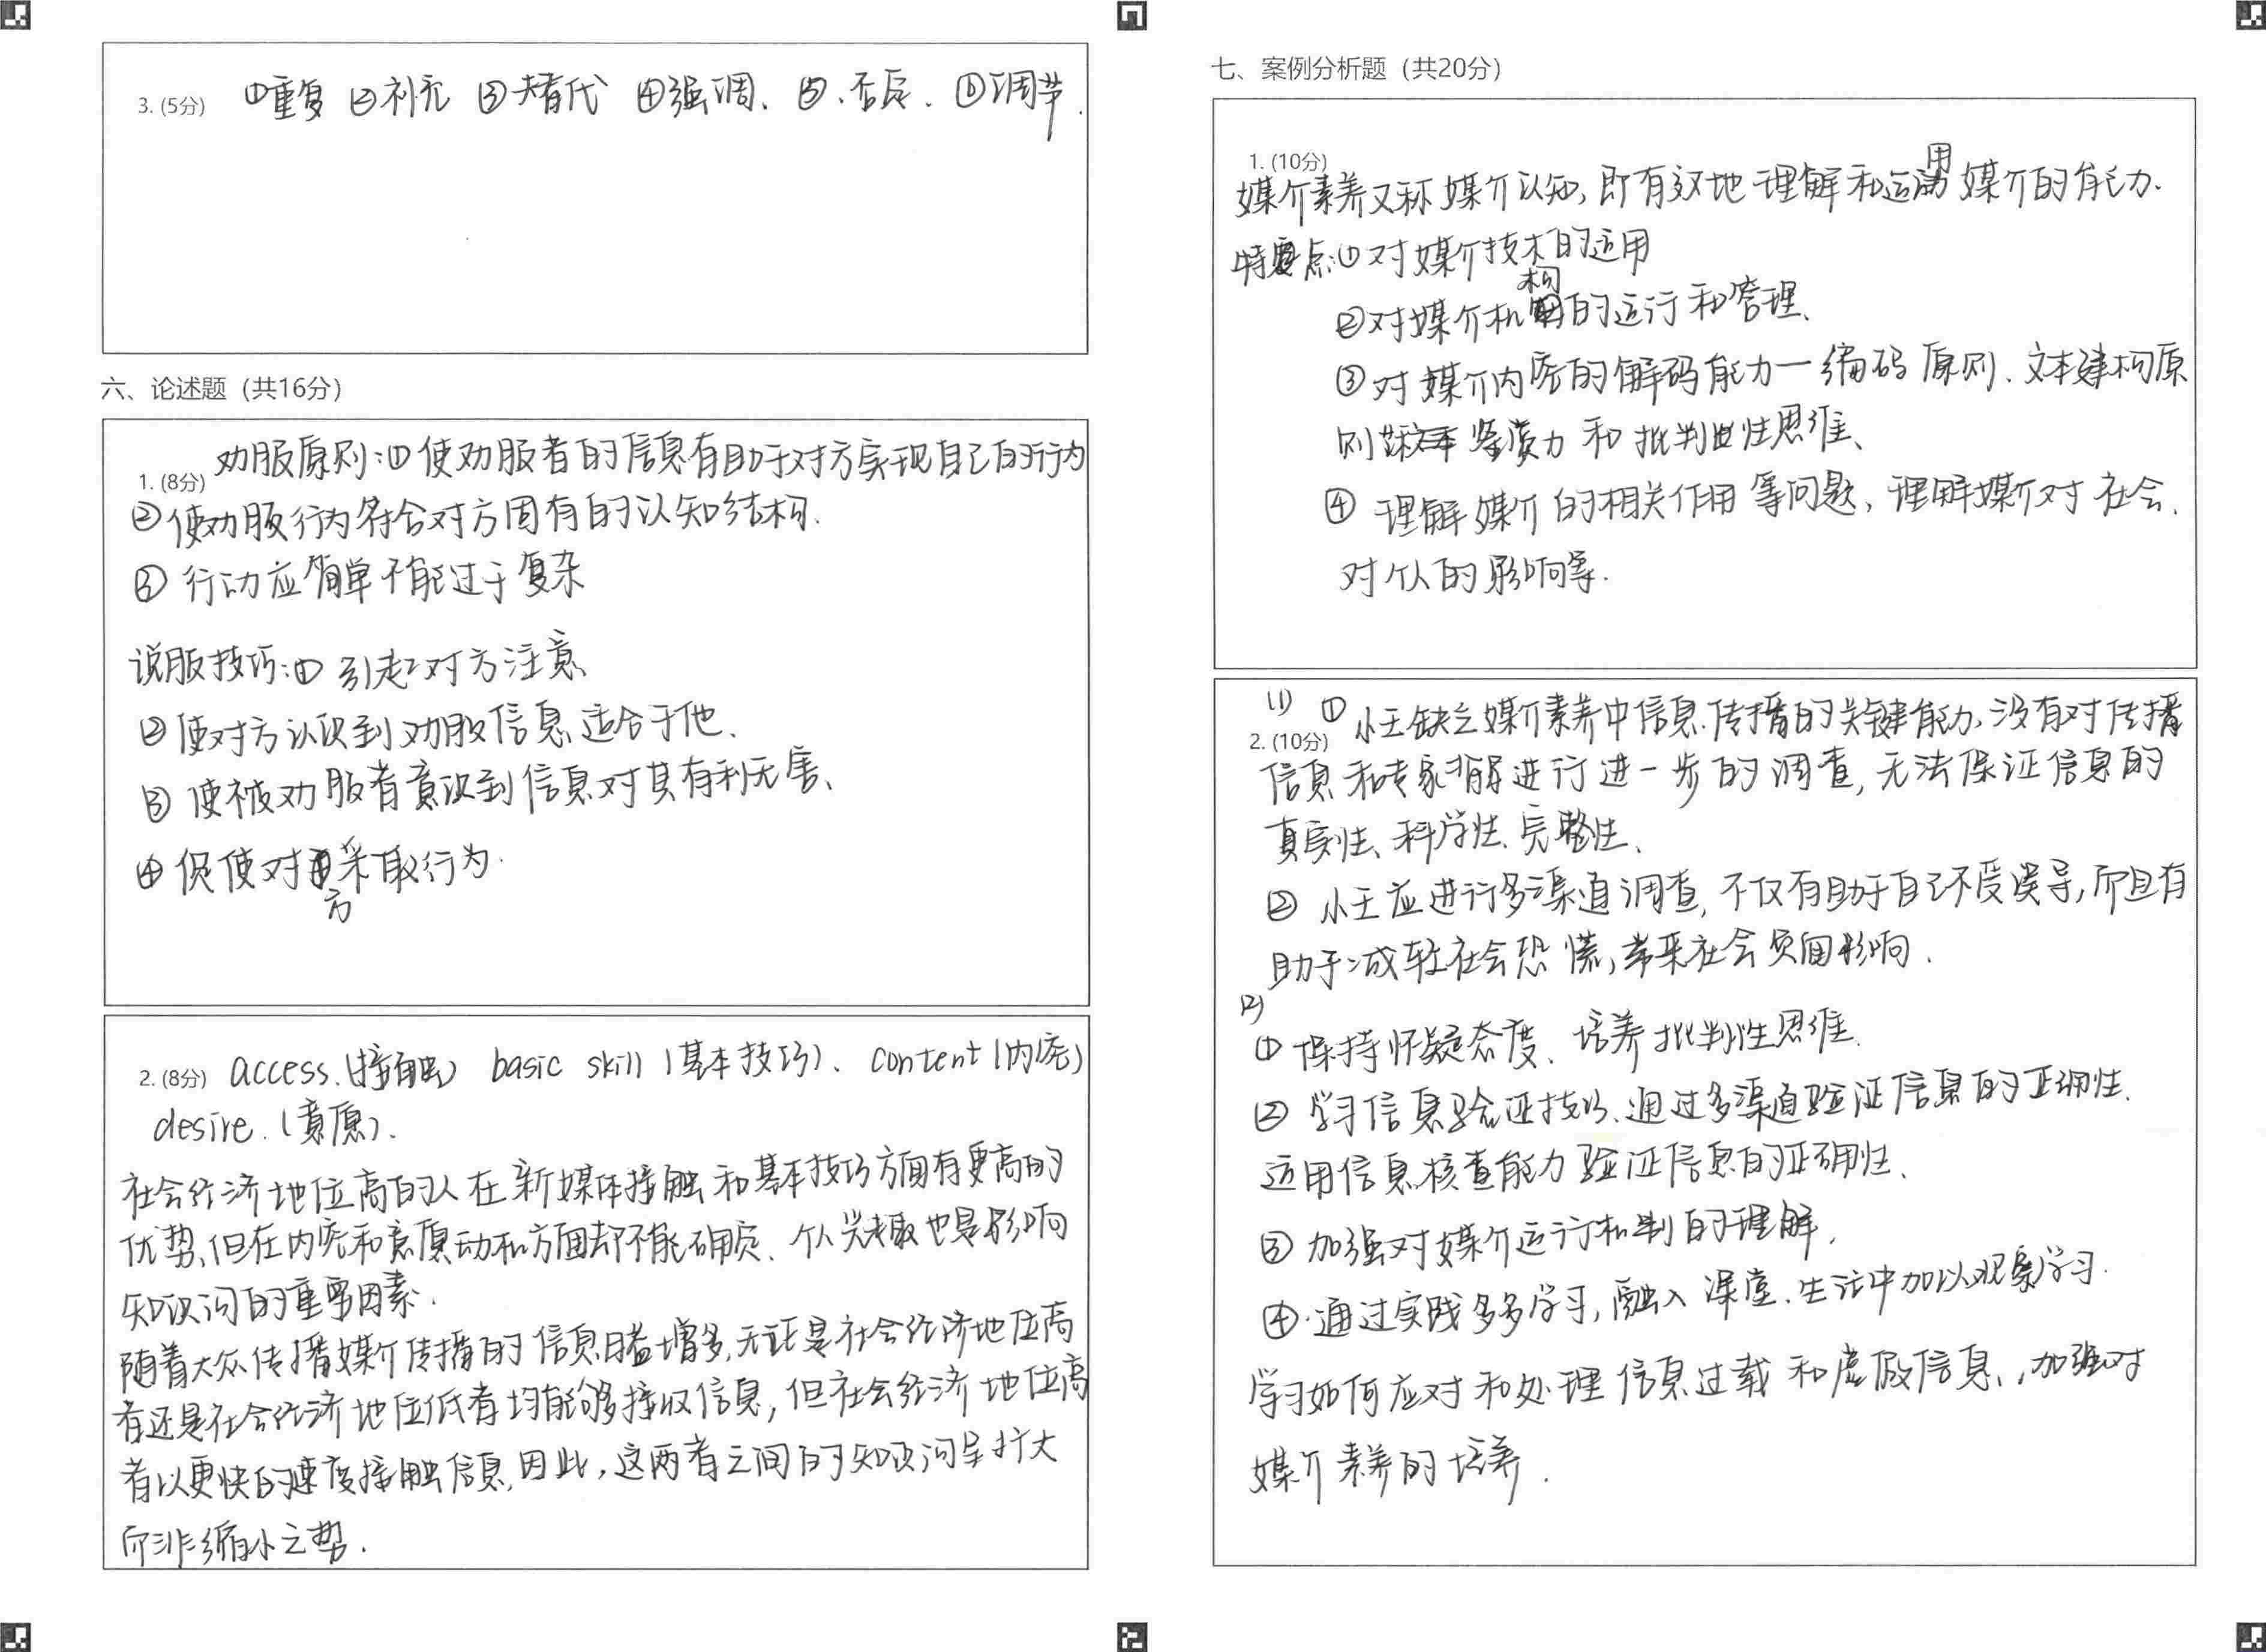 3. (5分) ①重复 ②补充 ③替代 ④强调、⑤、否定、⑥调节.
六、论述题（共16分）
1. (8分) 劝服原则:①使劝服者的信息有助于对方实现自己的行为
②使劝服行为符合对方固有的认知结构.
③行动应简单不能过于复杂
说服技巧:①引起对方注意、
②使对方认识到劝服信息适合于他、
③使被劝服者意识到信息对其有利无害、
④促使对方采取行为.
2. (8分) access、(接触) basic skill (基本技巧)、content (内容)
desire. (意愿).
社会经济地位高的人在新媒体接触和基本技巧方面有更高的
优势、但在内容和意愿动机方面却不能确定、个人兴趣也是影响
知识沟的重要因素.
随着大众传播媒介传播的信息日益增多,无论是社会经济地位高
者还是社会经济地位低者均能够接收信息,但社会经济地位高
者以更快的速度接触信息,因此,这两者之间的知识沟呈扩大
而非缩小之势.
七、案例分析题（共20分）
1. (10分)
媒介素养又称媒介认知,即有效地理解和运用媒介的能力.
特点:①对媒介技术的运用
②对媒介机构的运行和管理、
③对媒介内容的解码能力一编码原则、文本建构原
则 鉴赏力和批判性思维、
④理解媒介的相关作用等问题,理解媒介对社会、
对个人的影响等.
(1) ①小王缺乏媒介素养中信息传播的关键能力,没有对传播
2. (10分) 信息和专家 进行进一步的调查,无法保证信息的
真实性、科学性、完整性、
②小王应进行多渠道调查,不仅有助于自己不受误导,而且有
助于减轻社会恐慌,带来社会负面影响.
(2)
①保持怀疑态度、培养批判性思维.
②学习信息验证技巧、通过多渠道验证信息的正确性.
运用信息核查能力验证信息的正确性、
③加强对媒介运行机制的理解,
④.通过实践多多学习,融入课堂、生活中加以观察学习.
学习如何应对和处理信息过载和虚假信息、,加强对
媒介素养的培养.